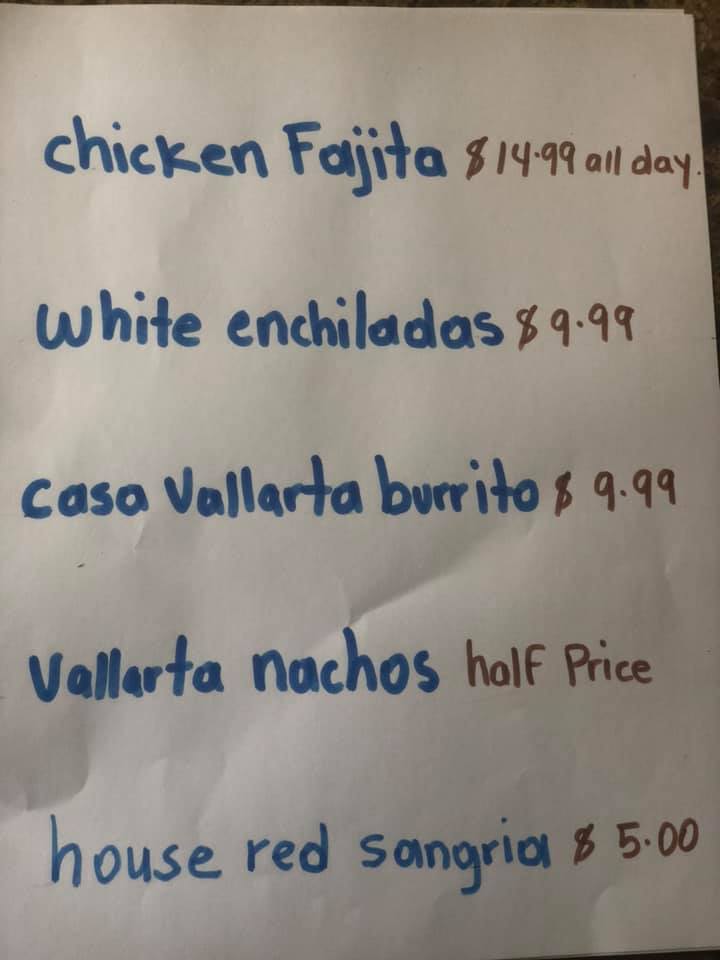 chicken Fajita $14.99 all day.
white enchiladas $9.99
casa Vallarta burrito $9.99
Vallarta nachos half Price
house red sangria $5.00